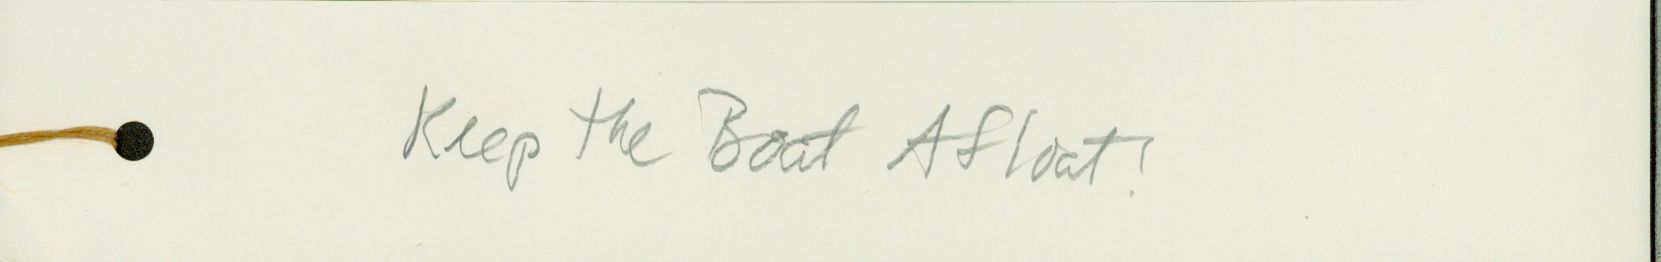 Keep the Boat Afloat!